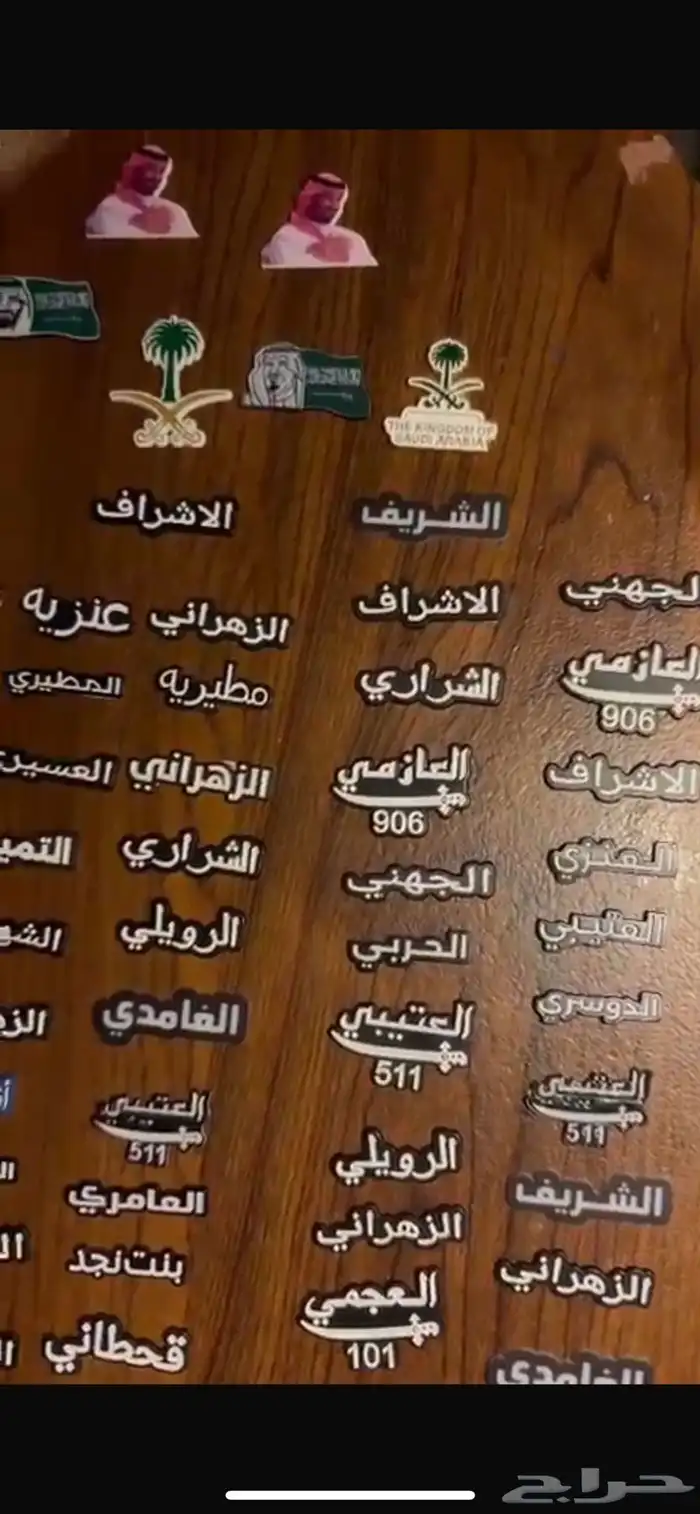 THE KINGDOM OF
SAUDI ARABIA
الشريف
الاشراف
الاشراف
الزهراني
عنزيه
الشراري
مطيريه
المطيري
العازمي
906
العازمي
906
الزهراني
الاشراف
الجهني
الشراري
العنزي
الحربي
الرويلي
العتيبي
العتيبي
511
الغامدي
الدوسري
الرويلي
العتيبي
511
511
الزهراني
العامري
الشريف
العجمي
101
بنت نجد
الزهراني
قحطاني
الغامدي
حراج